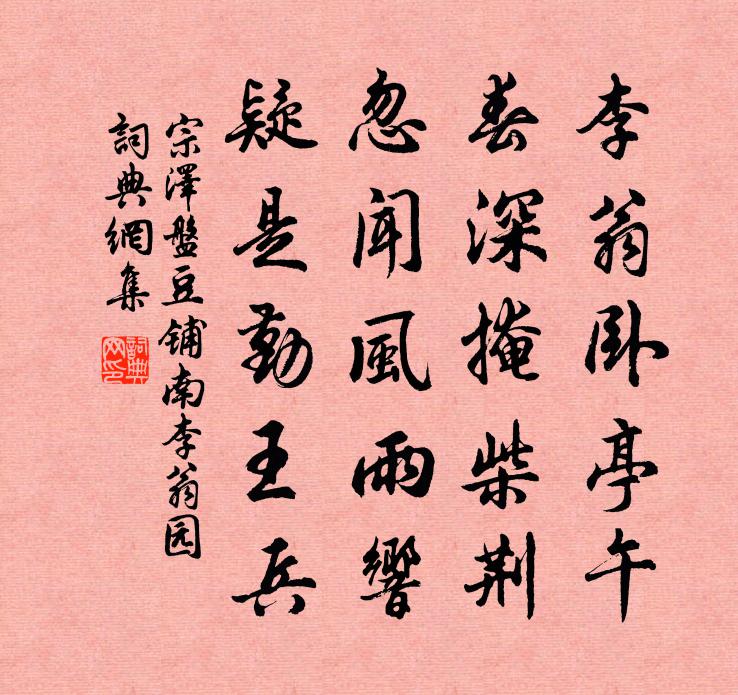 李翁卧亭午
春深掩柴荆
忽闻風雨響
疑是勤王兵
宗澤盤豆铺南李翁园
詞典網集
詞典网印